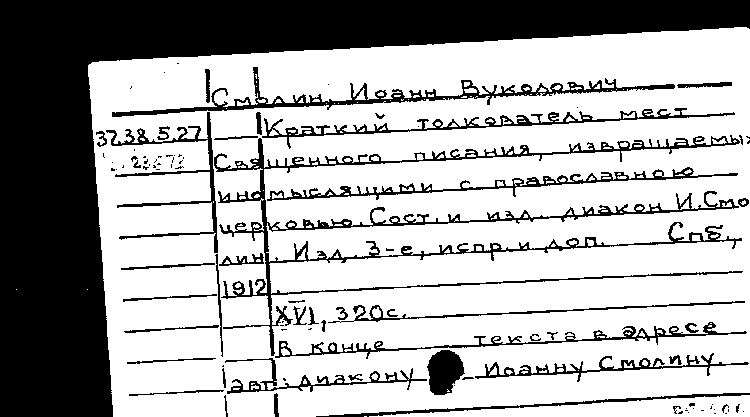 Смолин, Иоанн Вуколович
37.38.5.27 Краткий толкователь мест
Священного писания, извращаемых
иномыслящими с православною
церковью. Сост. и изд. диакон И. Смо
лин. Изд. 3-е, испр. и доп. Спб.,
1912.
XVI, 320с.
В конце текста в адресе
авт.: диакону Иоанну Смолину.